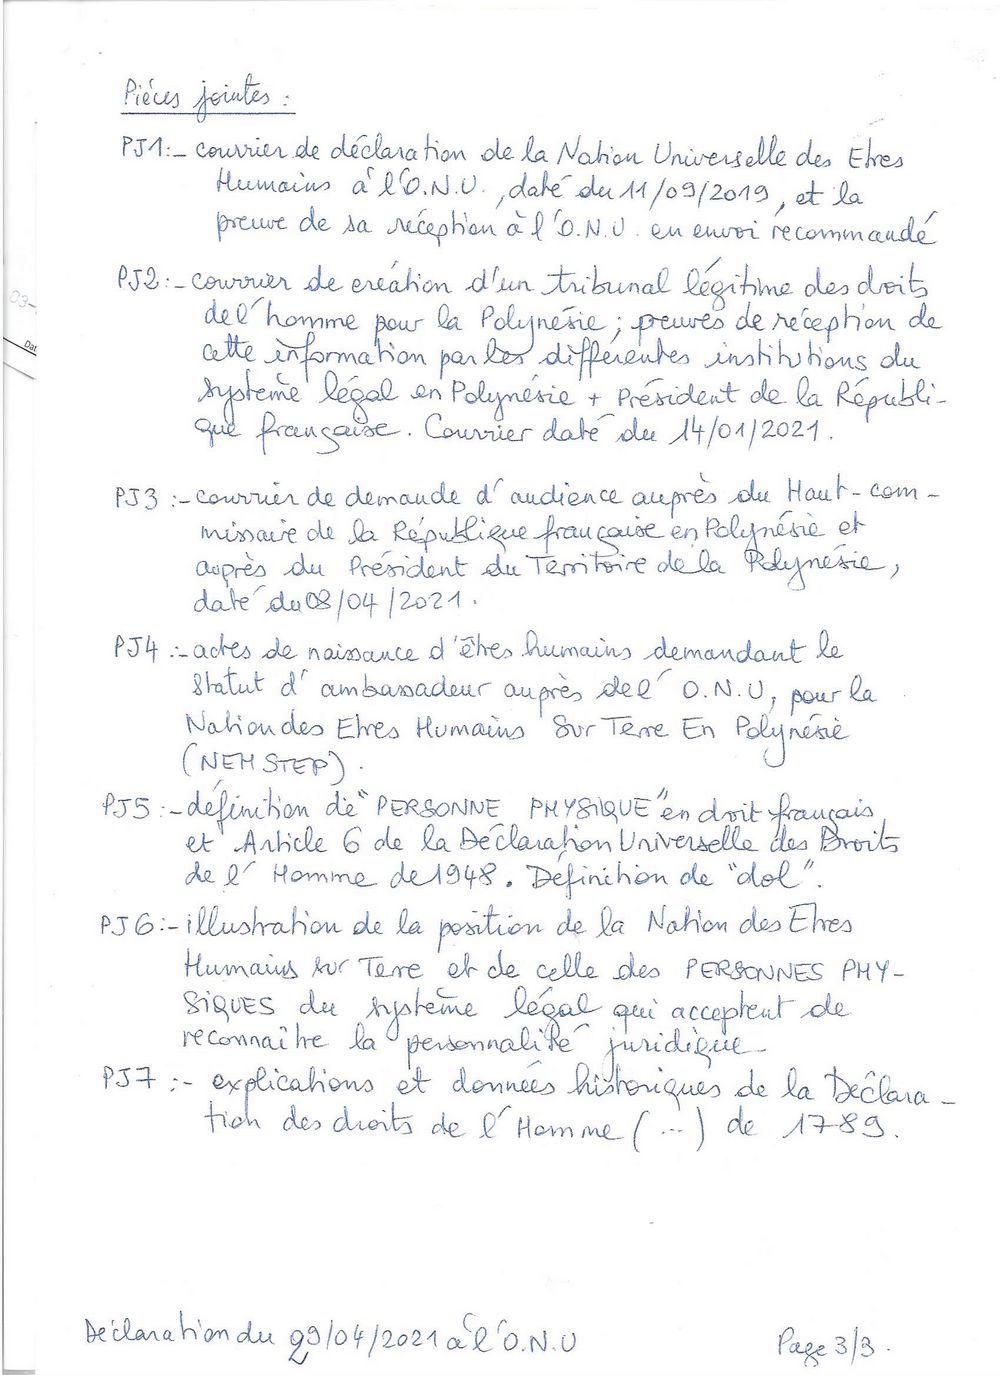 Pièces jointes :
PJ1:- courrier de déclaration de la Nation Universelle des Etres
Humains à l'O.N.U., daté du 11/09/2019, et la
preuve de sa réception à l'O.N.U. en envoi recommandé
PJ2:- courrier de création d'un tribunal légitime des droits
de l'homme pour la Polynésie ; preuves de réception de
cette information par les différentes institutions du
système légal en Polynésie + Président de la Républi-
que française. Courrier daté du 14/01/2021.
03-
Dat
PJ3 :- courrier de demande d'audience auprès du Haut-com-
missaire de la République française en Polynésie et
auprès du Président du Territoire de la Polynésie,
daté du 08/04/2021.
PJ4 :- actes de naissance d'êtres humains demandant le
Statut d'ambassadeur auprès de l'O.N.U, pour la
Nation des Etres Humains Sur Terre En Polynésie
(NEHSTEP).
PJ5 :- définition de "PERSONNE PHYSIQUE" en droit français
et Article 6 de la Déclaration Universelle des Droits
de l'Homme de 1948. Définition de "dol".
PJ6 :- illustration de la position de la Nation des Etres
Humains sur Terre et de celle des PERSONNES PHY-
SIQUES du système légal qui acceptent de
reconnaître la personnalité juridique
PJ7 :- explications et données historiques de la Déclara-
tion des droits de l'Homme (...) de 1789.
Déclaration du 29/04/2021 à l'O.N.U
Page 3/3.